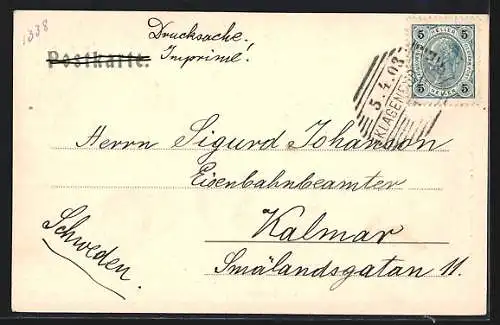 1338
Drucksache!
Postkarte. Imprimé!
5 HELLER 5
5 HELLER 5
5.4.03
KLAGENFURT
Herrn Sigurd Johanson
Eisenbahnbeamter
Kalmar
Smålandsgatan 11.
Schweden.